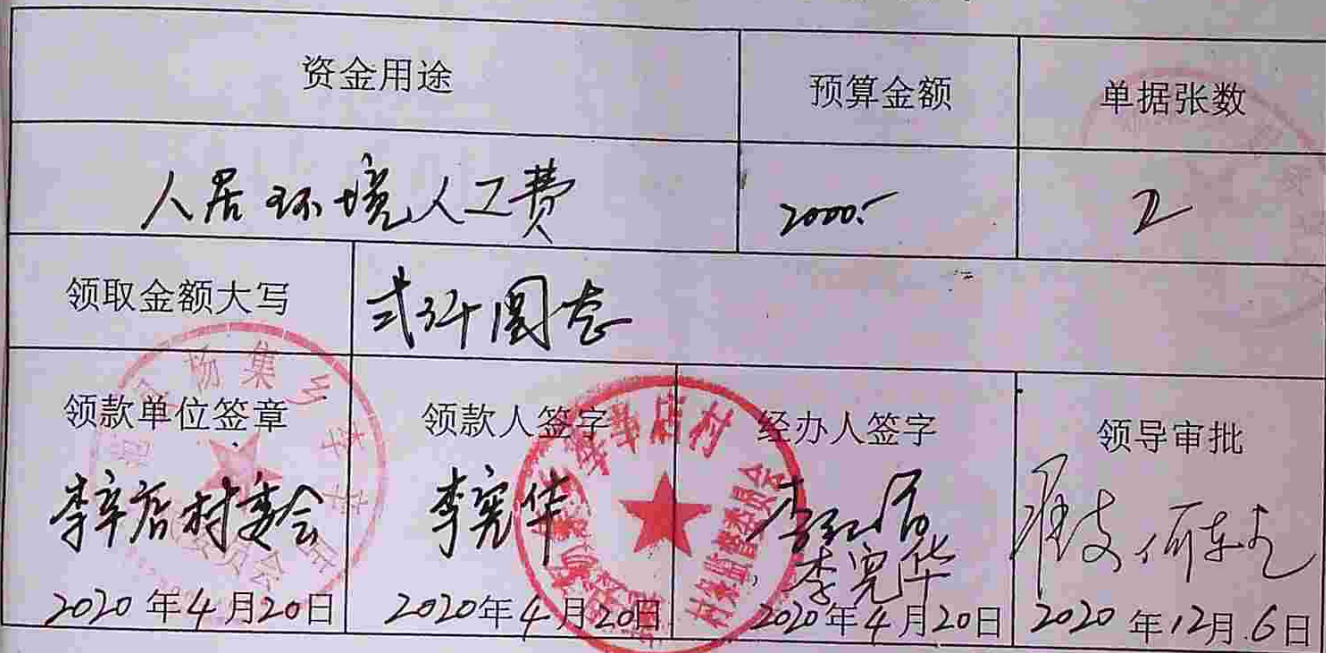 资金用途 预算金额 单据张数
人居环境人工费 2000.- 2
领取金额大写 弍仟圆
领款单位签章 领款人签字 经办人签字 领导审批
李辛店村委会 李宪华
李宪华
2020年4月20日 2020年4月20日 2020年4月20日 2020年12月6日
杨集乡
辛店村
村务监督委员会